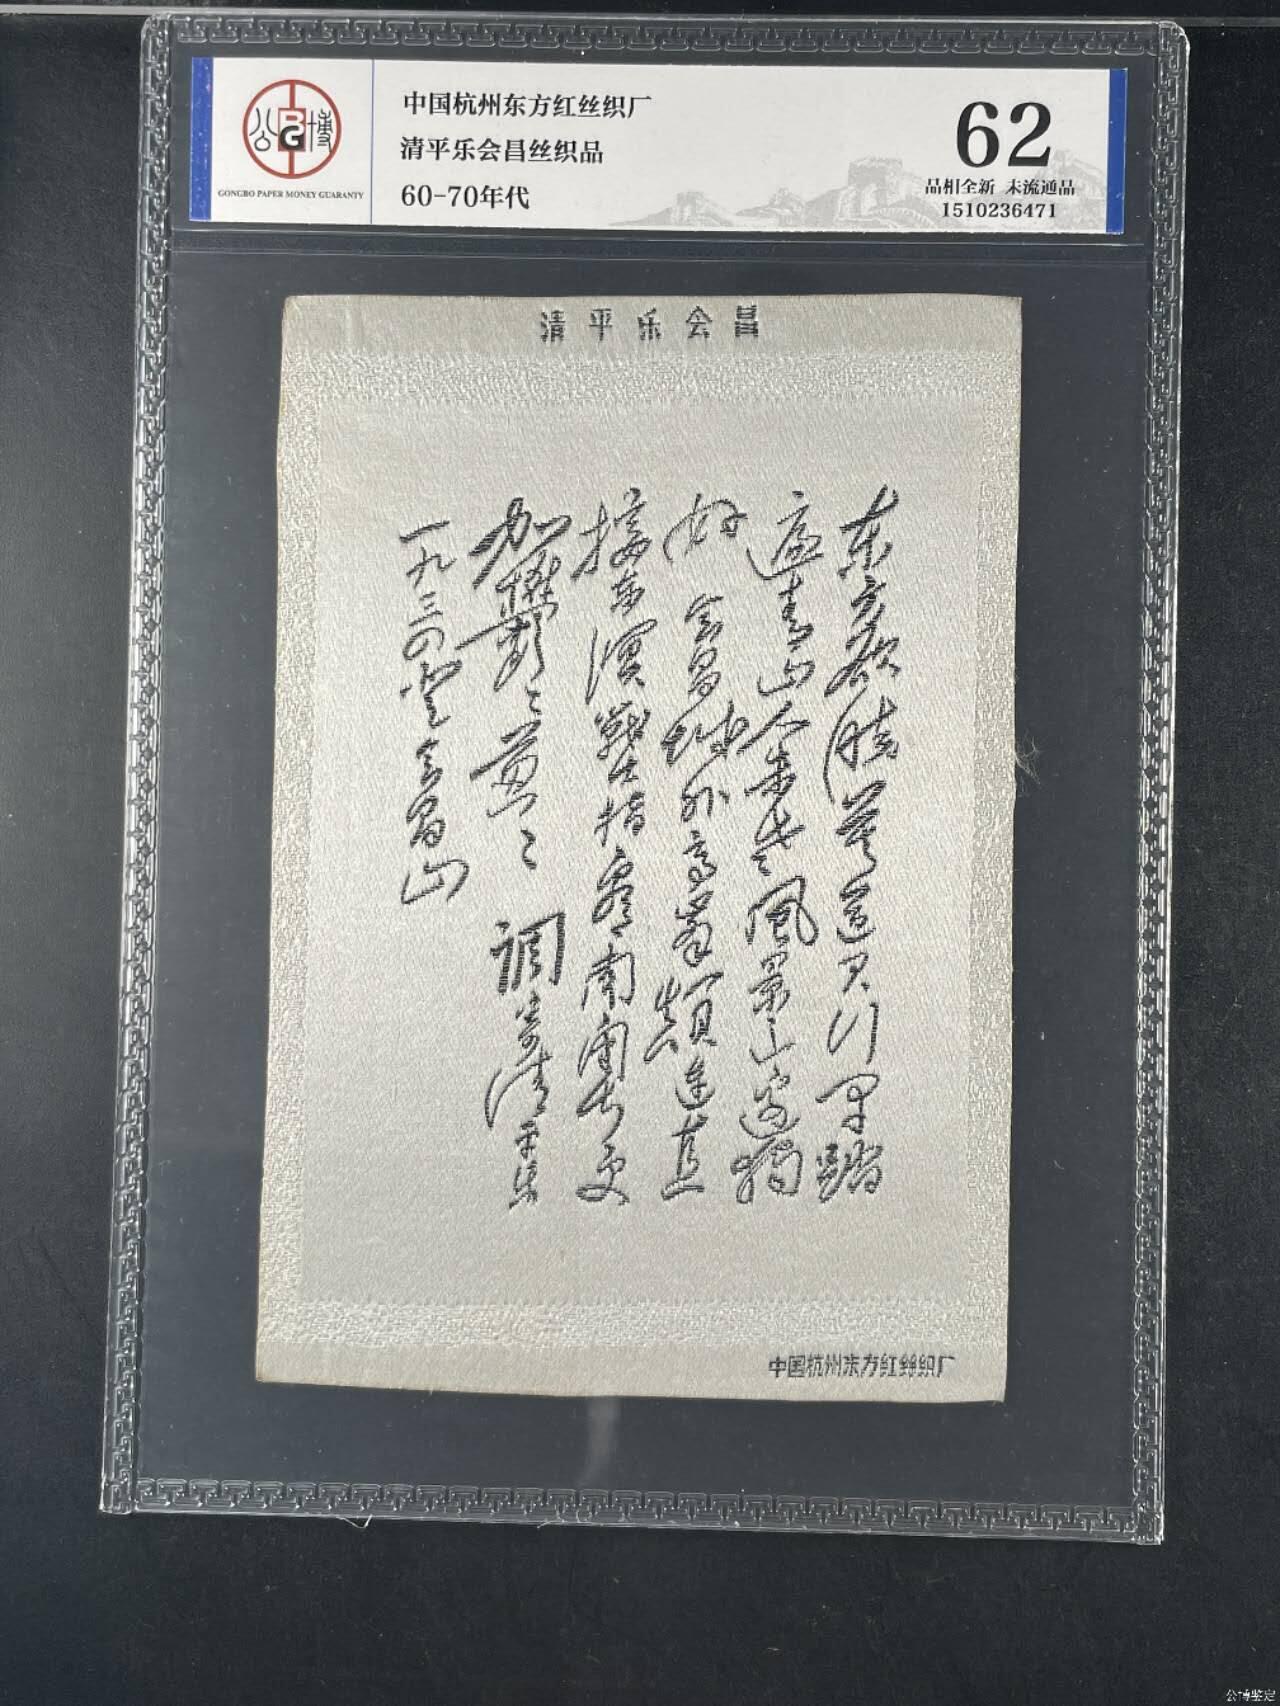 公博
BG
GONGBO PAPER MONEY GUARANTY
中国杭州东方红丝织厂
清平乐会昌丝织品
60-70年代
62
品相全新 未流通品
1510236471
清平乐会昌
东方欲晓莫道君行早踏
遍青山人未老风景这边独
好 会昌城外高峰颠连直
接东溟战士指看南粤更
加鬱々葱々 调寄清平乐
一九三四登会昌山
中国杭州东方红丝织厂
公博鉴定